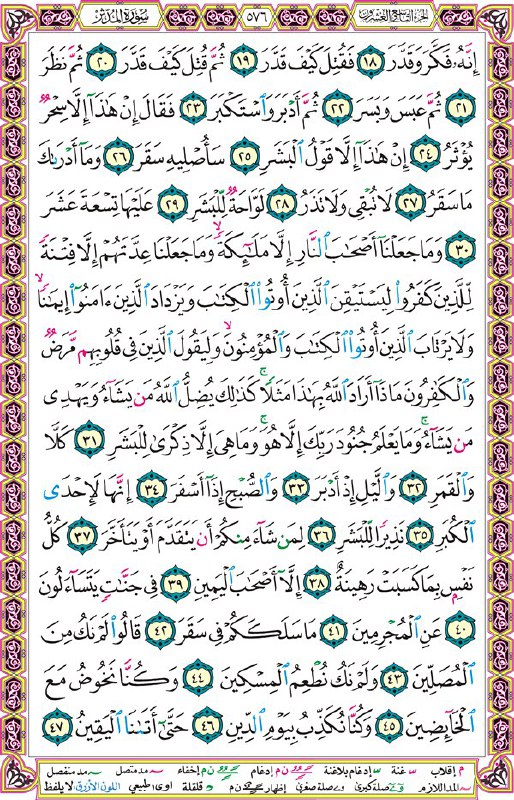 سورة المدثر
٥٧٦
الجزء التاسع والعشرون
إِنَّهُۥ فَكَّرَ وَقَدَّرَ ١٨ فَقُتِلَ كَيْفَ قَدَّرَ ١٩ ثُمَّ قُتِلَ كَيْفَ قَدَّرَ ٢٠ ثُمَّ نَظَرَ
٢١ ثُمَّ عَبَسَ وَبَسَرَ ٢٢ ثُمَّ أَدْبَرَ وَٱسْتَكْبَرَ ٢٣ فَقَالَ إِنْ هَٰذَآ إِلَّا سِحْرٌ
يُؤْثَرُ ٢٤ إِنْ هَٰذَآ إِلَّا قَوْلُ ٱلْبَشَرِ ٢٥ سَأُصْلِيهِ سَقَرَ ٢٦ وَمَآ أَدْرَىٰكَ
مَا سَقَرُ ٢٧ لَا تُبْقِى وَلَا تَذَرُ ٢٨ لَوَّاحَةٌ لِّلْبَشَرِ ٢٩ عَلَيْهَا تِسْعَةَ عَشَرَ
٣٠ وَمَا جَعَلْنَآ أَصْحَٰبَ ٱلنَّارِ إِلَّا مَلَٰٓئِكَةً ۙ وَمَا جَعَلْنَا عِدَّتَهُمْ إِلَّا فِتْنَةً
لِّلَّذِينَ كَفَرُوا۟ لِيَسْتَيْقِنَ ٱلَّذِينَ أُوتُوا۟ ٱلْكِتَٰبَ وَيَزْدَادَ ٱلَّذِينَ ءَامَنُوٓا۟ إِيمَٰنًا ۙ
وَلَا يَرْتَابَ ٱلَّذِينَ أُوتُوا۟ ٱلْكِتَٰبَ وَٱلْمُؤْمِنُونَ ۙ وَلِيَقُولَ ٱلَّذِينَ فِى قُلُوبِهِم مَّرَضٌ
وَٱلْكَٰفِرُونَ مَاذَآ أَرَادَ ٱللَّهُ بِهَٰذَا مَثَلًا ۚ كَذَٰلِكَ يُضِلُّ ٱللَّهُ مَن يَشَآءُ وَيَهْدِى
مَن يَشَآءُ ۚ وَمَا يَعْلَمُ جُنُودَ رَبِّكَ إِلَّا هُوَ ۚ وَمَا هِىَ إِلَّا ذِكْرَىٰ لِلْبَشَرِ ٣١ كَلَّا
وَٱلْقَمَرِ ٣٢ وَٱلَّيْلِ إِذْ أَدْبَرَ ٣٣ وَٱلصُّبْحِ إِذَآ أَسْفَرَ ٣٤ إِنَّهَا لَإِحْدَى
ٱلْكُبَرِ ٣٥ نَذِيرًا لِّلْبَشَرِ ٣٦ لِمَن شَآءَ مِنكُمْ أَن يَتَقَدَّمَ أَوْ يَتَأَخَّرَ ٣٧ كُلُّ
نَفْسٍۭ بِمَا كَسَبَتْ رَهِينَةٌ ٣٨ إِلَّآ أَصْحَٰبَ ٱلْيَمِينِ ٣٩ فِى جَنَّٰتٍ يَتَسَآءَلُونَ
٤٠ عَنِ ٱلْمُجْرِمِينَ ٤١ مَا سَلَكَكُمْ فِى سَقَرَ ٤٢ قَالُوا۟ لَمْ نَكُ مِنَ
ٱلْمُصَلِّينَ ٤٣ وَلَمْ نَكُ نُطْعِمُ ٱلْمِسْكِينَ ٤٤ وَكُنَّا نَخُوضُ مَعَ
ٱلْخَآئِضِينَ ٤٥ وَكُنَّا نُكَذِّبُ بِيَوْمِ ٱلدِّينِ ٤٦ حَتَّىٰٓ أَتَىٰنَا ٱلْيَقِينُ ٤٧
م إقلاب غنة إدغام بلاغنة ن م إدغام ن م إخفاء مد متصل مد منفصل
المد اللازم صلة كبرى صلة صغرى إظهار ن م قلقلة اوى طبيعي اللون الأزرق لا يلفظ